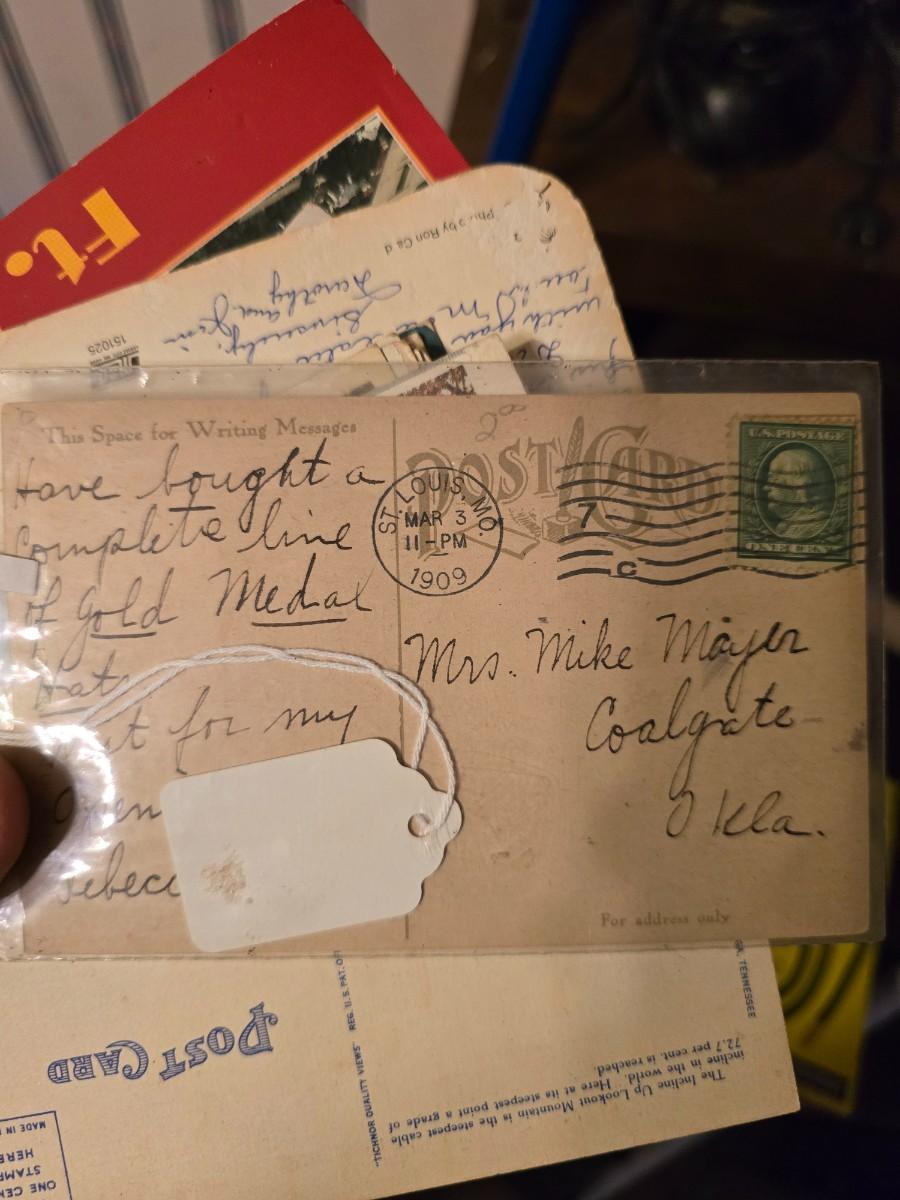 Ft.
Photo by Ron
151025
Sincerely,
Dorothy and Jim
with you
This Space for Writing Messages
Have bought a
complete line
of Gold Medal
Hats
for my
POST CARD
ST. LOUIS, MO.
MAR 3
11-PM
1909
7
C
U.S. POSTAGE
ONE CENT
Mrs. Mike Mayer
Coalgate
Okla.
For address only
POST CARD
"TICHNOR QUALITY VIEWS" REG. U.S. PAT. OFF
TENNESSEE
The Incline Up Lookout Mountain is the steepest cable
incline in the world. Here at its steepest point a grade of
72.7 per cent. is reached.
ONE CEN
STAMP
HERE
MADE IN